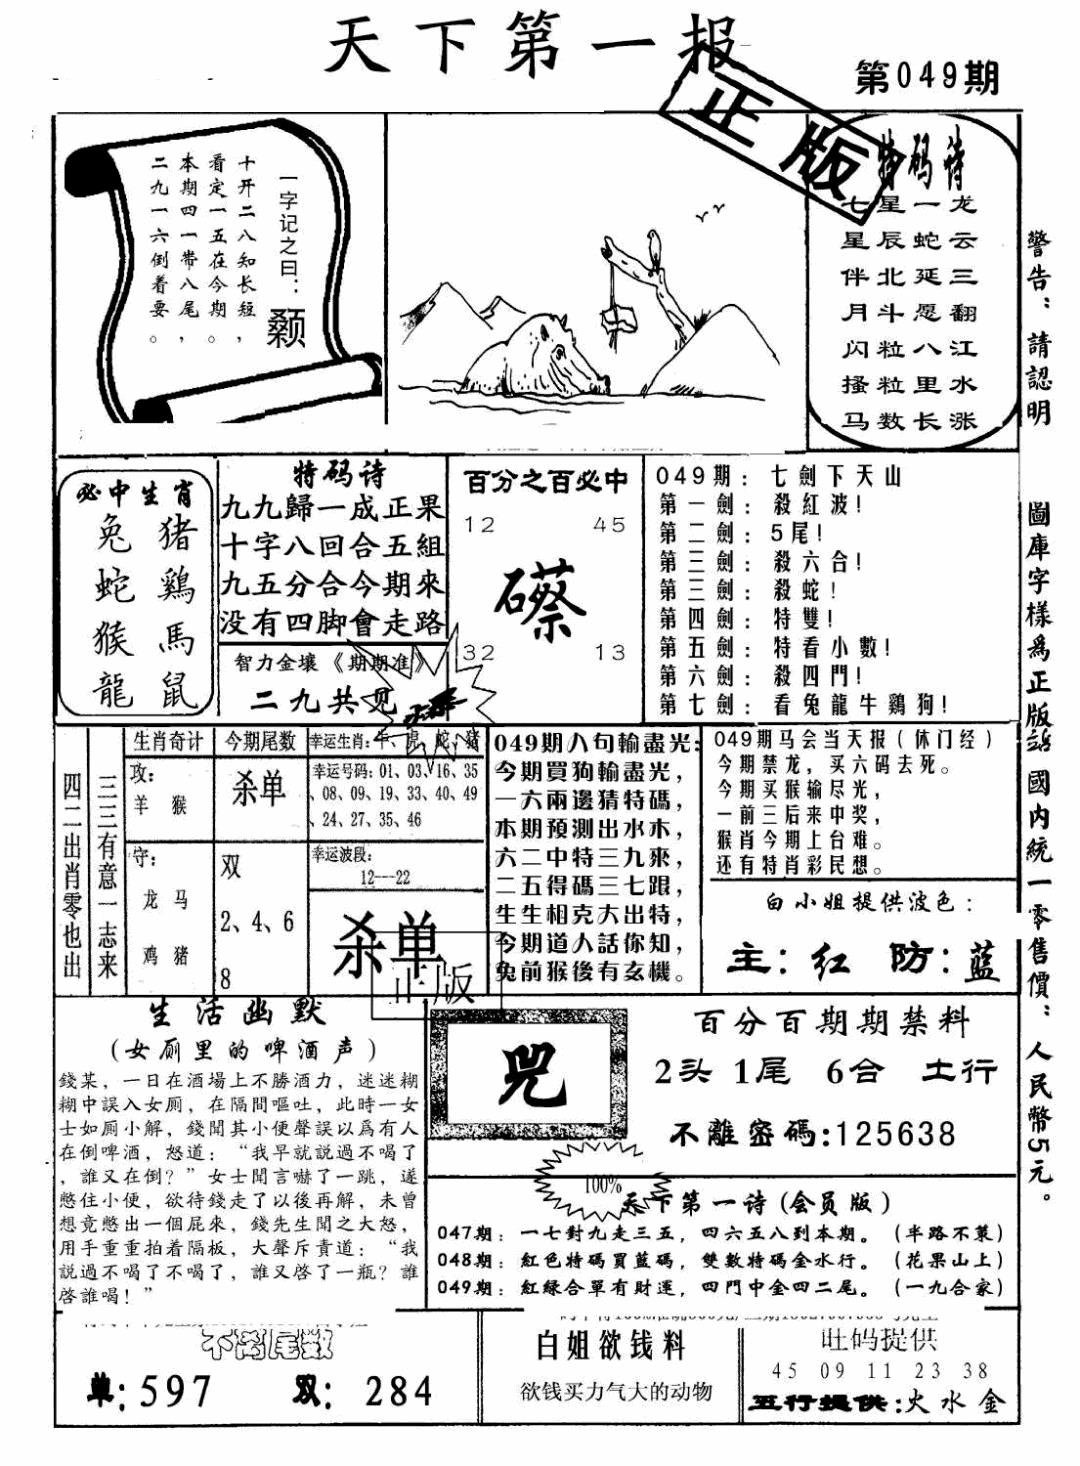 天下第一报
第049期
正版
一字记之曰：
颡
十开二八知长短，
看定一五在今期。
本期四一带八尾，
二九一六倒着要。
特码诗
七星一龙
星辰蛇云
伴北延三
月斗愿翻
闪粒八江
搔粒里水
马数长涨
警告：請認明
圖庫字樣為正版
國内統一零售價：人民幣5元。
必中生肖
兔 猪
蛇 鷄
猴 馬
龍 鼠
特码诗
九九歸一成正果
十字八回合五組
九五分合今期來
没有四脚會走路
智力金壤《期期准》
二九共见
百分之百必中
12 45
礤
32 13
049期：七劍下天山
第一劍：殺紅波！
第二劍：5尾！
第三劍：殺六合！
第三劍：殺蛇！
第四劍：特雙！
第五劍：特看小數！
第六劍：殺四門！
第七劍：看兔龍牛鷄狗！
四二出肖零也出
三三有意一志来
生肖奇计
攻：
羊 猴
守：
龙 马
鸡 猪
今期尾数
杀单
双
2、4、6
8
幸运生肖：牛、虎、蛇、猪
幸运号码：01、03、16、35
、08、09、19、33、40、49
、24、27、35、46
幸运波段：
12---22
杀单
正版
049期八句輸盡光：
今期買狗輸盡光，
一六兩邊猜特碼，
本期預測出水木，
六二中特三九來，
二五得碼三七跟，
生生相克大出特，
今期道人話你知，
兔前猴後有玄機。
049期马会当天报（休门经）
今期禁龙，买六码去死。
今期买猴输尽光，
一前三后来中奖，
猴肖今期上台难。
还有特肖彩民想。
白小姐提供波色：
主：红 防：蓝
生活幽默
（女厕里的啤酒声）
錢某，一日在酒場上不勝酒力，迷迷糊
糊中誤入女厕，在隔間嘔吐，此時一女
士如厕小解，錢聞其小便聲誤以爲有人
在倒啤酒，怒道：“我早就説過不喝了
，誰又在倒？”女士聞言嚇了一跳，遂
憋住小便，欲待錢走了以後再解，未曾
想竟憋出一個屁來，錢先生聞之大怒，
用手重重拍着隔板，大聲斥責道：“我
説過不喝了不喝了，誰又啓了一瓶？誰
啓誰喝！”
咒
百分百期期禁料
2头 1尾 6合 土行
不離密碼:125638
100%
天下第一诗(会员版)
047期：一七對九走三五，四六五八到本期。（半路不策）
048期：紅色特碼買藍碼，雙數特碼金水行。（花果山上）
049期：紅緑合單有財運，四門中金四二尾。（一九合家）
不离尾数
单：597 双：284
白姐欲钱料
欲钱买力气大的动物
吐码提供
45 09 11 23 38
五行提供：火水金